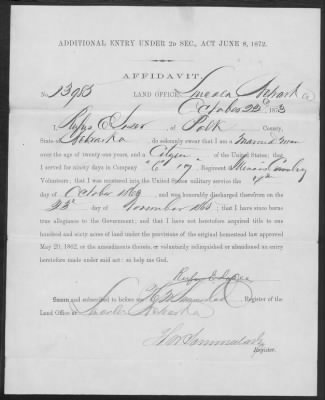 ADDITIONAL ENTRY UNDER 2D SEC., ACT JUNE 8, 1872.
AFFIDAVIT.
No. 13983 LAND OFFICE, Lincoln Nebraska
October 22d 1873
I, Rufus E. of Polk County,
State of Nebraska, do solemnly swear that I am a married man
over the age of twenty-one years, and a Citizen of the United States; that
I served for ninety days in Company Regiment Cavalry
Volunteers; that I was mustered into the United States military service the
day of October 186 , and was honorably discharged therefrom on the
22d day of November 1865; that I have since borne
true allegiance to the Government; and that I have not heretofore acquired title to one
hundred and sixty acres of land under the provisions of the original homestead law approved
May 20, 1862, or the amendments thereto, or voluntarily relinquished or abandoned an entry
heretofore made under said act: so help me God.
Rufus E.
Sworn and subscribed to before me Register of the
Land Office at Lincoln Nebraska
Register.